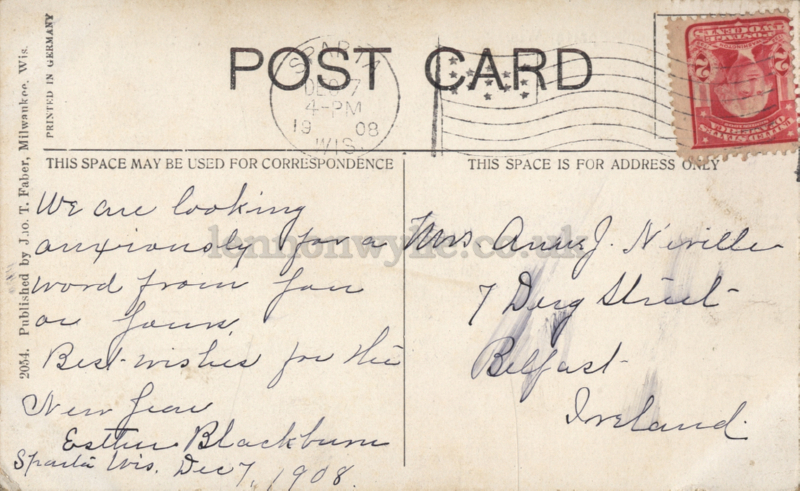 POST CARD
SPARTA
DEC 7
4-PM
1908
WIS.
THIS SPACE MAY BE USED FOR CORRESPONDENCE
THIS SPACE IS FOR ADDRESS ONLY
PRINTED IN GERMANY
2054. Published by Jno. T. Faber, Milwaukee, Wis.
We are looking
anxiously for a
word from you
or yours.
Best-wishes for the
New Year
Esther Blackburn
Sparta Wis. Dec 7, 1908.
Mrs Annie J. Neville
7 Derg Street
Belfast
Ireland.
lennonwylie.co.uk